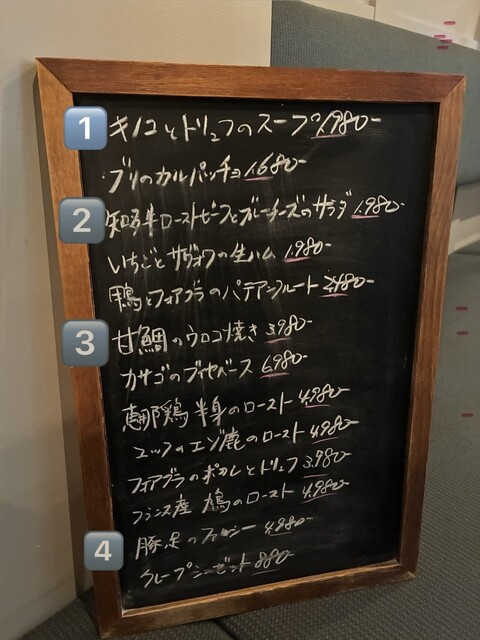 1 キノコとトリュフのスープ 1,980-
ブリのカルパッチョ 1,680-
2 知多牛ローストビーフとブルーチーズのサラダ 1,980-
いちごとサヴォワの生ハム 1,980-
鴨とフォアグラのパテアンクルート 2,480-
3 甘鯛のウロコ焼き 3,980-
カサゴのブイヤベース 6,980-
恵那鶏 半身のロースト 4,980-
エゾ鹿のロースト 4,980-
フォアグラのポワレとトリュフ 3,980-
フランス産 鳩のロースト 4,980-
4 豚足のファルシー 4,980-
クレープシュゼット 880-